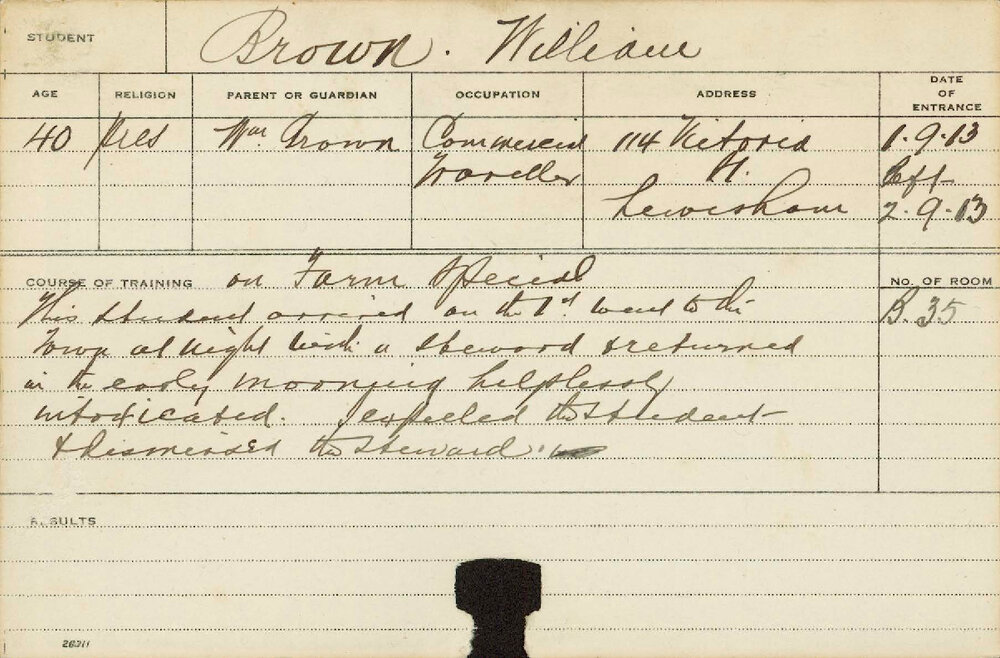 STUDENT Brown. William
AGE RELIGION PARENT OR GUARDIAN OCCUPATION ADDRESS DATE OF ENTRANCE
40 Pres Wm Brown Commercial 114 Victoria 1.9.13
Traveller St. Left
Lewisham 2.9.13
COURSE OF TRAINING on Farm Special NO. OF ROOM
This student arrived on the 1st went to the B.35
Town at night with a steward & returned
in the early morning helplessly
intoxicated. I expelled the student
& dismissed the steward
RESULTS
28311